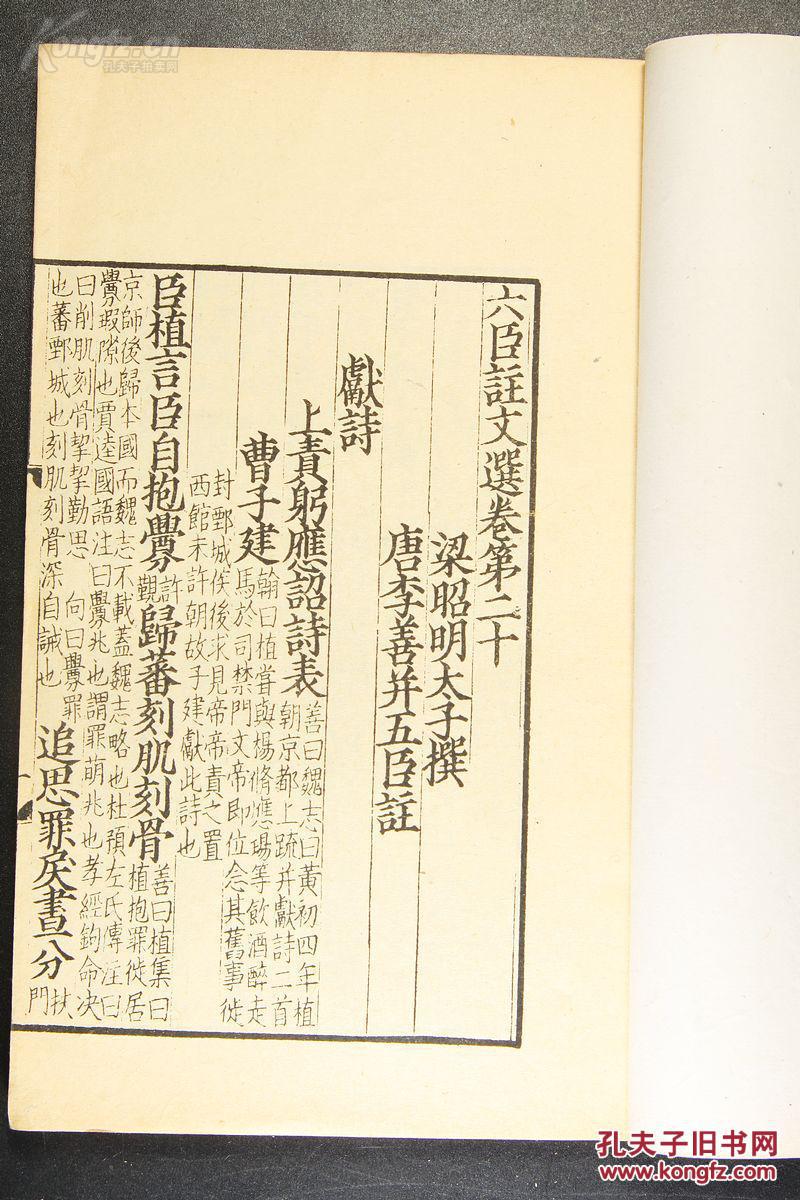 Kongfz.cn
孔夫子拍卖网
六臣註文選卷第二十
梁昭明太子撰
唐李善并五臣註
獻詩
上責躬應詔詩表
善曰魏志曰黃初四年植
朝京都上疏并獻詩二首
曹子建
翰曰植嘗與楊脩應瑒等飲酒醉走
馬於司禁門文帝即位念其舊事徙
封鄄城侯後求見帝帝責之置
西館未許朝故子建獻此詩也
臣植言臣自抱釁
許
覲
歸蕃刻肌刻骨
善曰植集曰
植抱罪徙居
京師後歸本國而魏志不載蓋魏志略也杜預左氏傳注曰
釁瑕隙也賈逵國語注曰釁兆也謂罪萌兆也孝經鉤命决
曰削肌刻骨挈挈勤思 向曰釁罪
也蕃鄄城也刻肌刻骨深自誡也
追思罪戾晝分
扶
門
孔夫子旧书网
www.kongfz.com